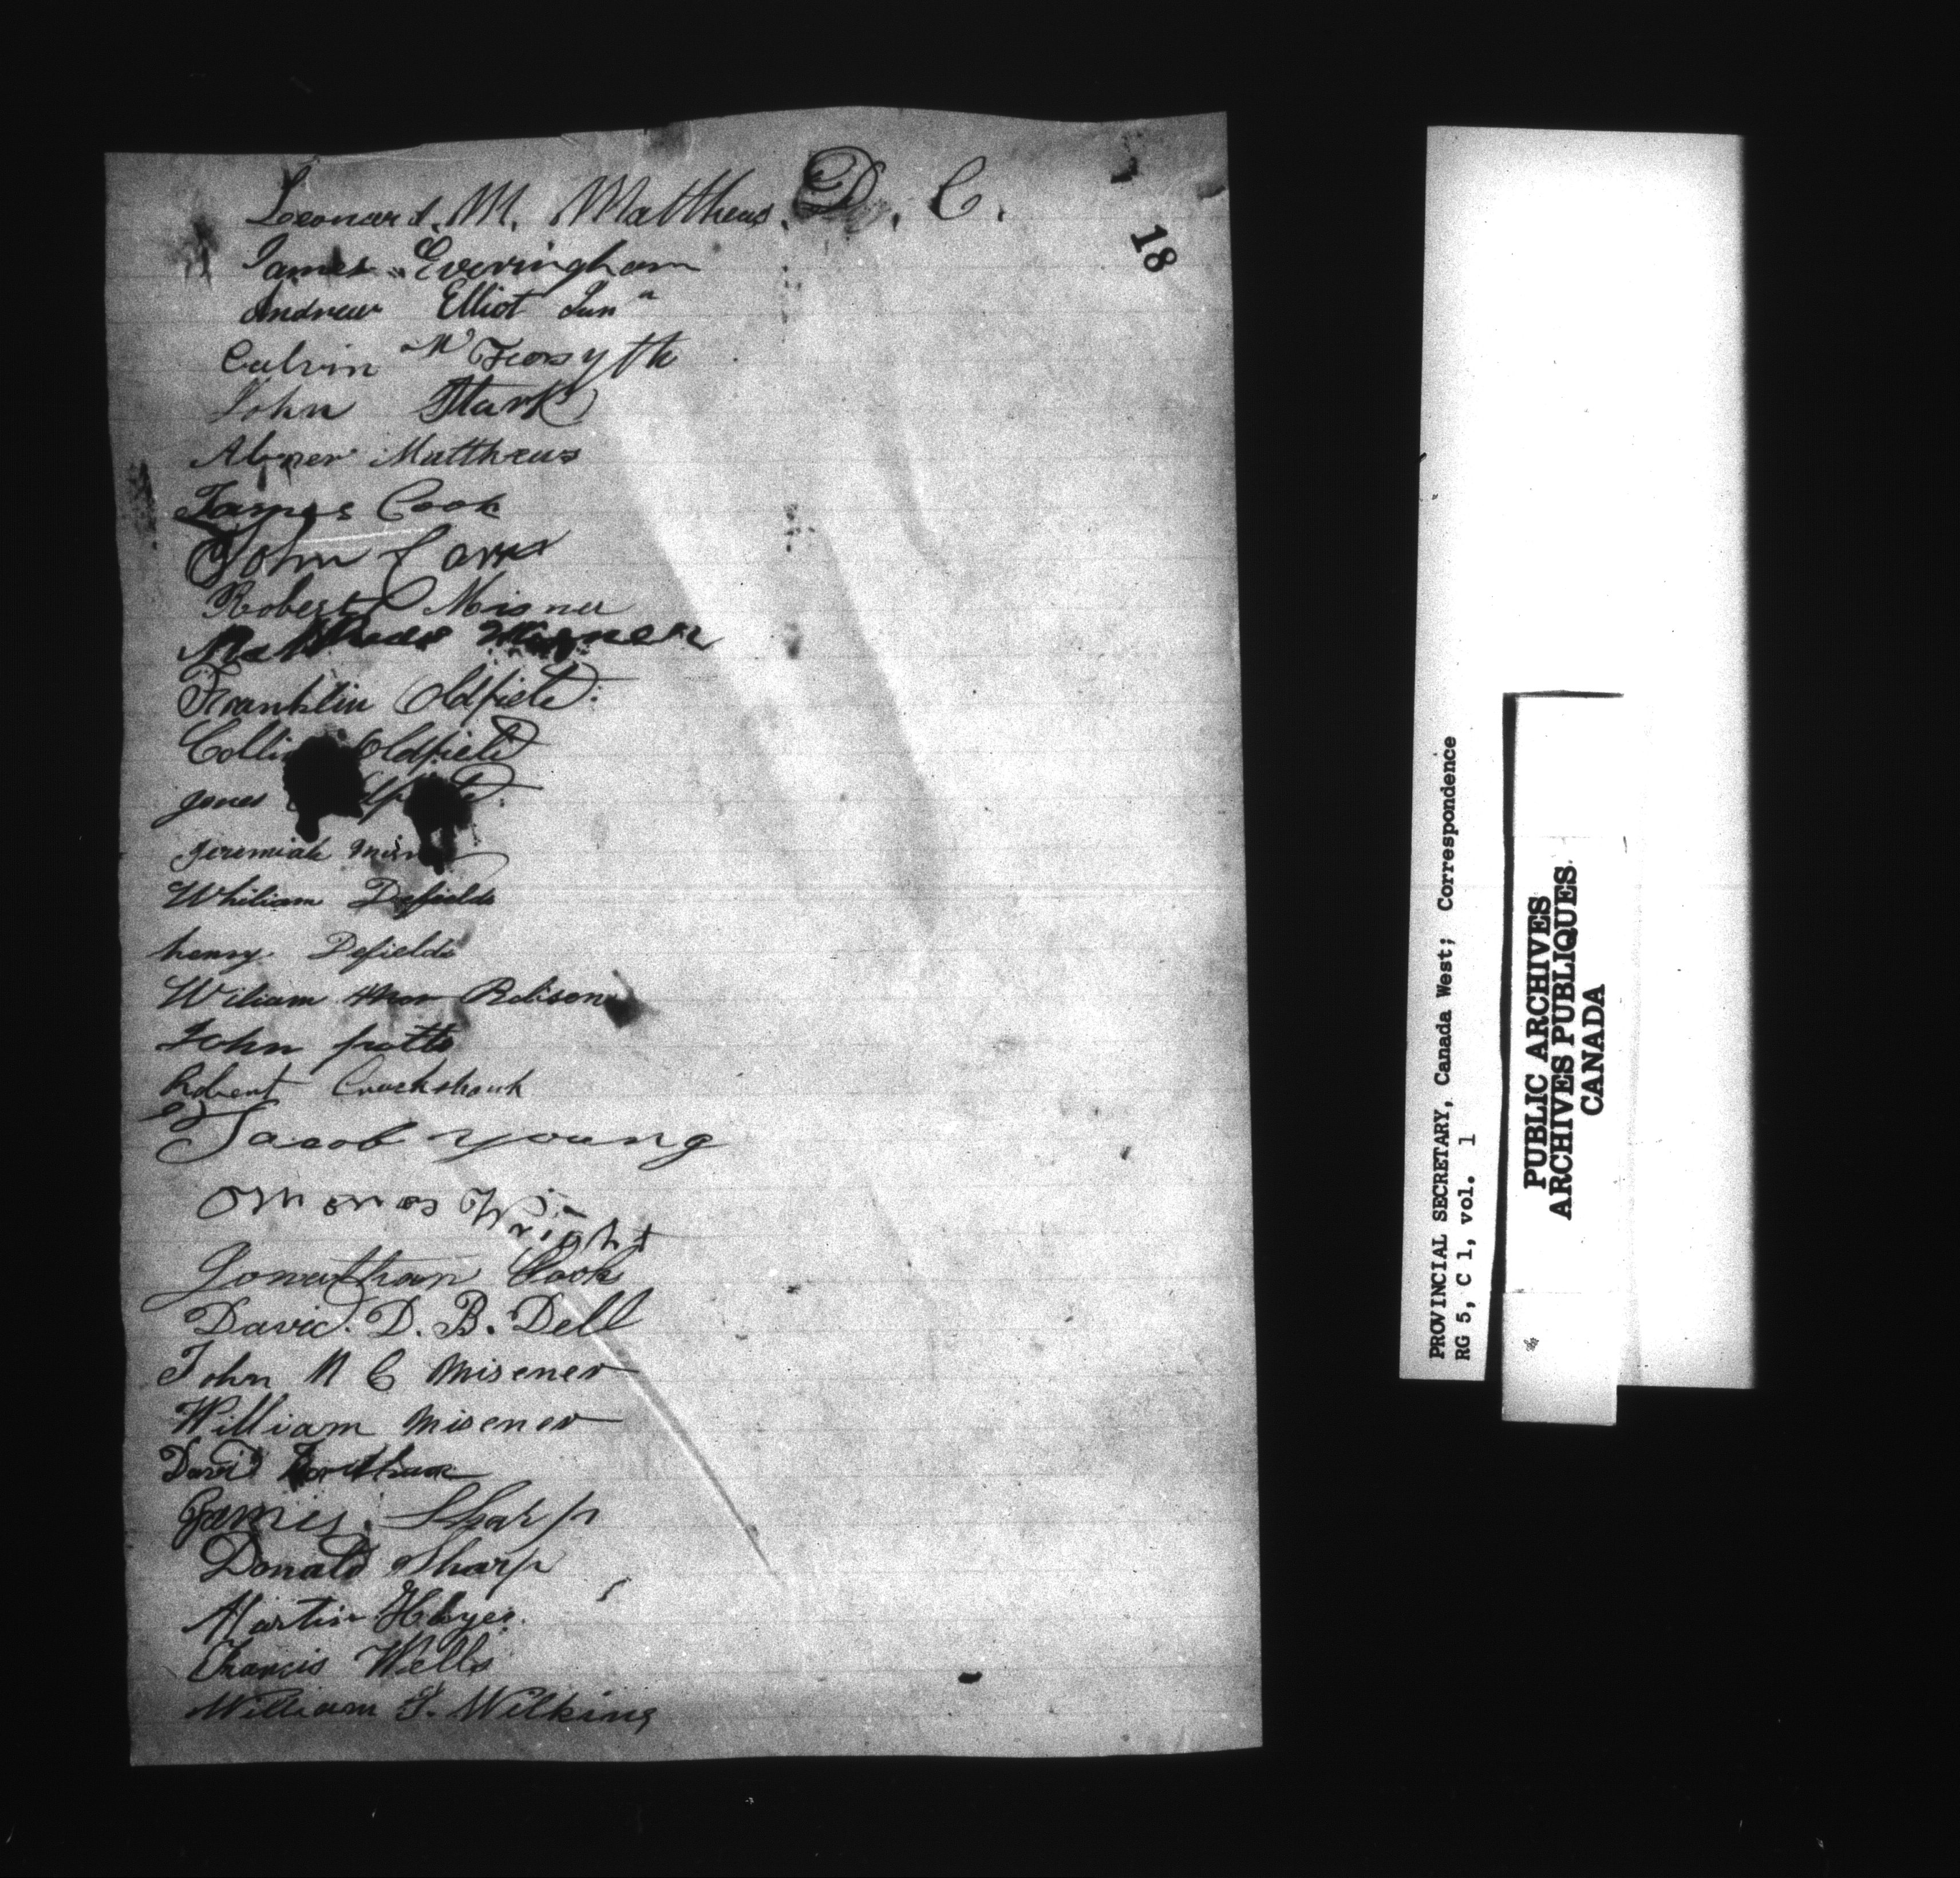 Leonard. M. Matthews. D. C.
18
James Everingham
Andrew Elliot Junr
Calvin Mc Forsyth
John Stark
Abner Matthews
James Cook
John Carr
Robert Misner
Matthias Misner
Franklin Oldfield.
Collin Oldfield
Jones
Jeremiah
Whiliam Defields
henry Defields
Wiliam Mor Rolison
John pratts
Robert Cruckshank
Jacob young
Wright
Jonathan Cook
David. D. B. Dell
John N C Misener
William Misener
David
James Sharp
Donald Sharp
Martin
Francis Wells
William F. Wilking
PROVINCIAL SECRETARY, Canada West; Correspondence
RG 5, C 1, vol. 1
PUBLIC ARCHIVES
ARCHIVES PUBLIQUES
CANADA